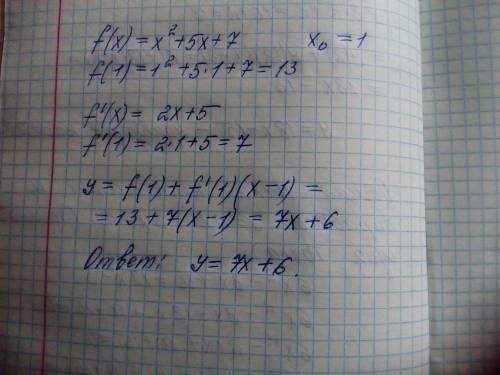 f(x) = x²+5x+7 x₀ = 1
f(1) = 1²+5·1+7 = 13
f'(x) = 2x+5
f'(1) = 2·1+5 = 7
y = f(1) + f'(1)(x-1) =
= 13 + 7(x-1) = 7x+6
Ответ: y = 7x+6.